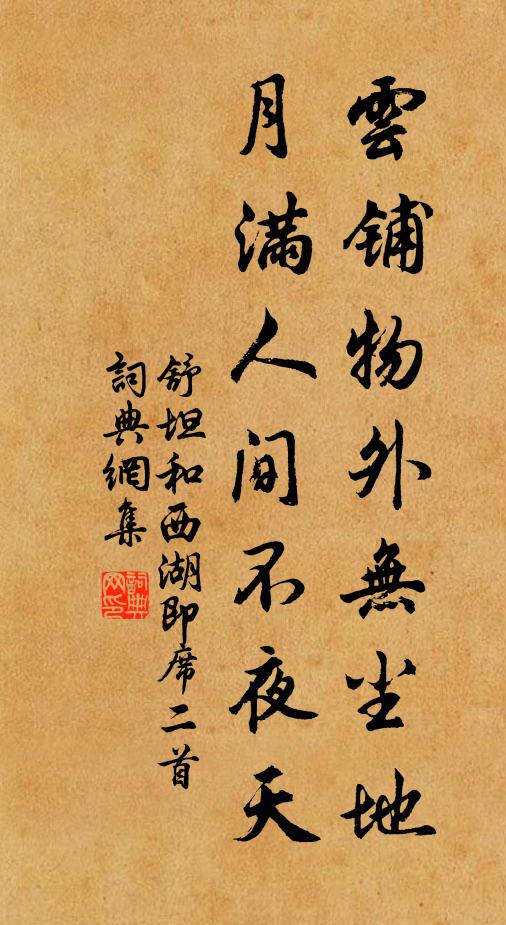 雲鋪物外無尘地
月滿人间不夜天
舒坦和西湖即席二首
詞典網集
詞典网印